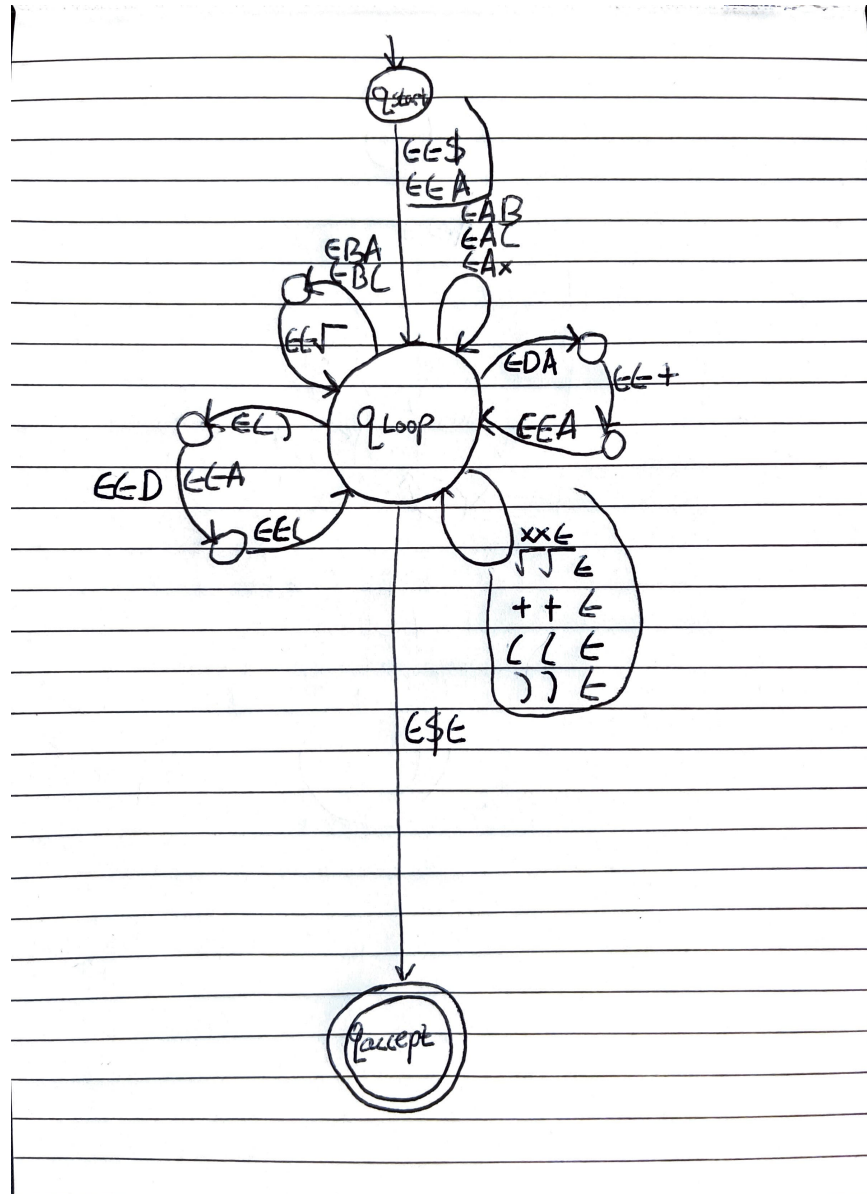 qstart
ϵϵ$
ϵϵA
ϵAB
ϵAC
ϵAx
ϵBA
ϵBC
ϵϵ√
ϵDA
ϵϵ+
ϵϵA
qLOOP
ϵC)
ϵϵD ϵϵA
ϵϵ(
xxϵ
√√ϵ
++ϵ
((ϵ
))ϵ
ϵ$ϵ
qaccept